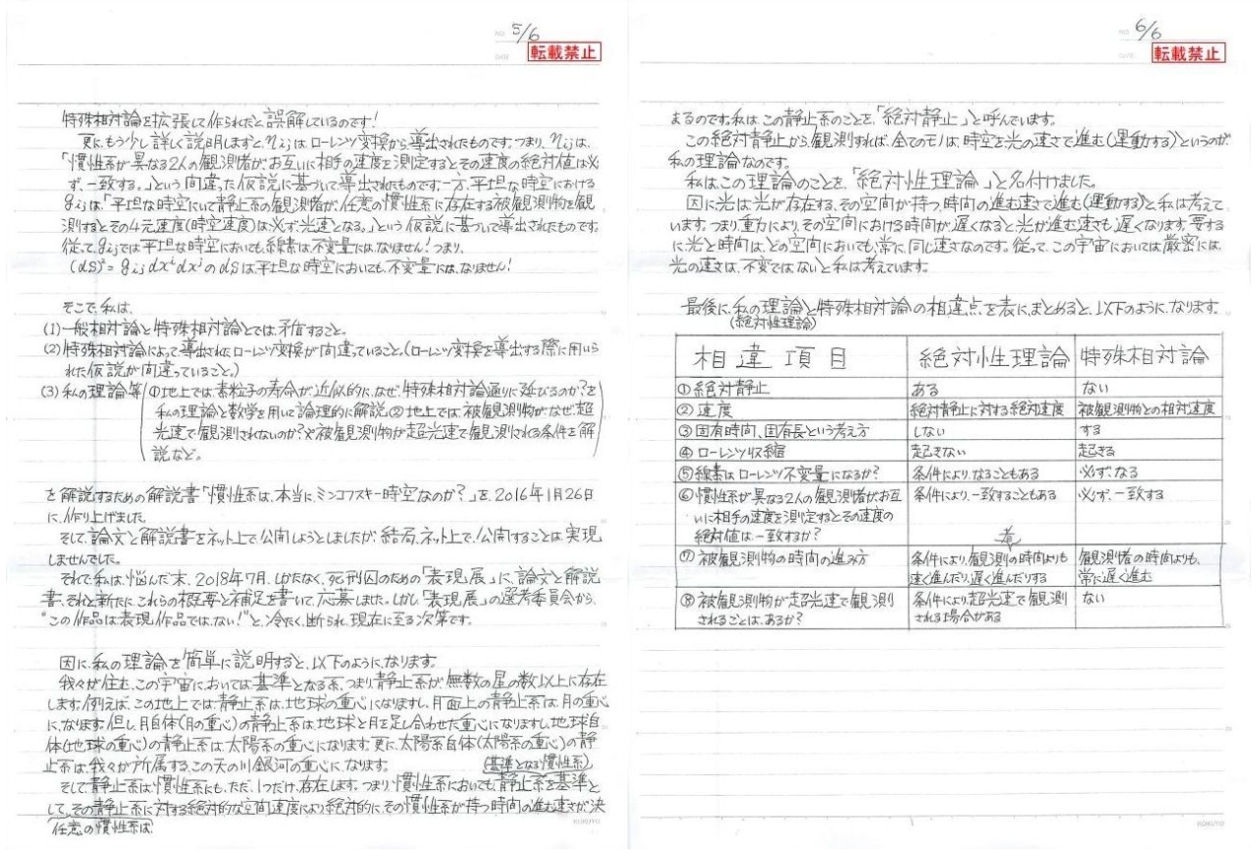 NO. 5/6
DATE
転載禁止
特殊相対論を拡張して作られたと誤解しているのです!
更に、もう少し詳しく説明しますと、ηijはローレンツ変換から導出されたものです。つまり、ηijは、
「慣性系が異なる2人の観測者が、お互いに相手の速度を測定するとその速度の絶対値は必
ず、一致する。」という間違った仮説に基づいて導出されたものです。一方、平坦な時空における
gijは、「平坦な時空にいて静止系の観測者が、任意の慣性系に存在する被観測物を観
測するとその4元速度(時空速度)は必ず光速となる。」という仮説に基づいて導出されたものです。
従って、gijでは平坦な時空においても、線素は、不変量にはなりません!つまり、
(ds)²=gijdxⁱdxʲのdsは平坦な時空においても、不変量には、なりません!
そこで、私は、
(1)一般相対論と特殊相対論とでは、矛盾すること。
(2)特殊相対論によって、導出されたローレンツ変換が間違っていること。(ローレンツ変換を導出する際に用いら
れた仮説が間違っていること。)
(3)私の理論等(①地上では、素粒子の寿命が、近似的に、なぜ、特殊相対論通りに延びるのか?を
私の理論と数学を用いて論理的に解説。②地上では、被観測物が、なぜ、超
光速で観測されないのか?や被観測物が超光速で観測される条件を解
説など。)
を解説するための解説書「慣性系は、本当に、ミンコフスキー時空なのか?」を、2016年1月26日
に、作り上げました。
そして、論文と解説書をネット上で公開しようとしましたが、結局、ネット上で、公開することは実現
しませんでした。
それで私は、悩んだ末、2018年7月、しかたなく、死刑囚のための「表現展」に、論文と解説
書、それと新たに、これらの概要と補足を書いて、応募しました。しかし「表現展」の選考委員会から、
"この作品は表現作品ではない!"と、冷たく、断られ、現在に至る次第です。
因に、私の理論を簡単に説明すると、以下のように、なります。
我々が住む、この宇宙においては、基準となる系、つまり、静止系が、無数の星の数以上に存在
します。例えば、この地上では、静止系は、地球の重心になりますし、月面上の静止系は、月の重心
に、なります。但し、月自体(月の重心)の静止系は、地球と月を足し合わせた重心になりますし、地球自
体(地球の重心)の静止系は、太陽系の重心になります。更に、太陽系自体(太陽系の重心)の静
止系は、我々が所属する、この天の川銀河の重心に、なります。
(基準となる慣性系)
そして、静止系は、慣性系にも、ただ、1つだけ、存在します。つまり、慣性系においても、静止系を基準と
して、その静止系に対する絶対的な空間速度により、絶対的に、その慣性系が持つ時間の進む速さが、決
任意の慣性系は、
KOKUYO
NO. 6/6
DATE
転載禁止
まるのです。私は、この静止系のことを、「絶対静止」と呼んでいます。
この絶対静止から、観測すれば、全てのモノは、時空を光の速さで進む(運動する)というのが、
私の理論なのです。
私は、この理論のことを、「絶対性理論」と名付けました。
因に光は光が存在する、その空間が持つ、時間の進む速さで進む(運動する)と私は考えて
います。つまり重力により、その空間における時間が、遅くなると光が進む速さも、遅くなります。要する
に光と時間は、どの空間においても、常に、同じ速さなのです。従って、この宇宙においては、厳密には、
光の速さは、不変ではないと私は考えています。
最後に、私の理論と特殊相対論の相違点を表に、まとめると、以下のように、なります。
(絶対性理論)
相違項目 絶対性理論 特殊相対論
①絶対静止 ある ない
②速度 絶対静止に対する絶対速度 被観測物との相対速度
③固有時間、固有長という考え方 しない する
④ローレンツ収縮 起きない 起きる
⑤線素はローレンツ不変量になるか? 条件により、なることもある 必ず、なる
⑥慣性系が異なる2人の観測者が、お互 条件により、一致することもある 必ず、一致する
いに相手の速度を測定するとその速度の
絶対値は、一致するか?
者
⑦被観測物の時間の進み方 条件により、観測の時間よりも 観測者の時間よりも、
速く進んだり、遅く進んだりする 常に遅く進む
⑧被観測物が超光速で観測 条件により超光速で観測 ない
されることは、あるか? される場合がある
KOKUYO